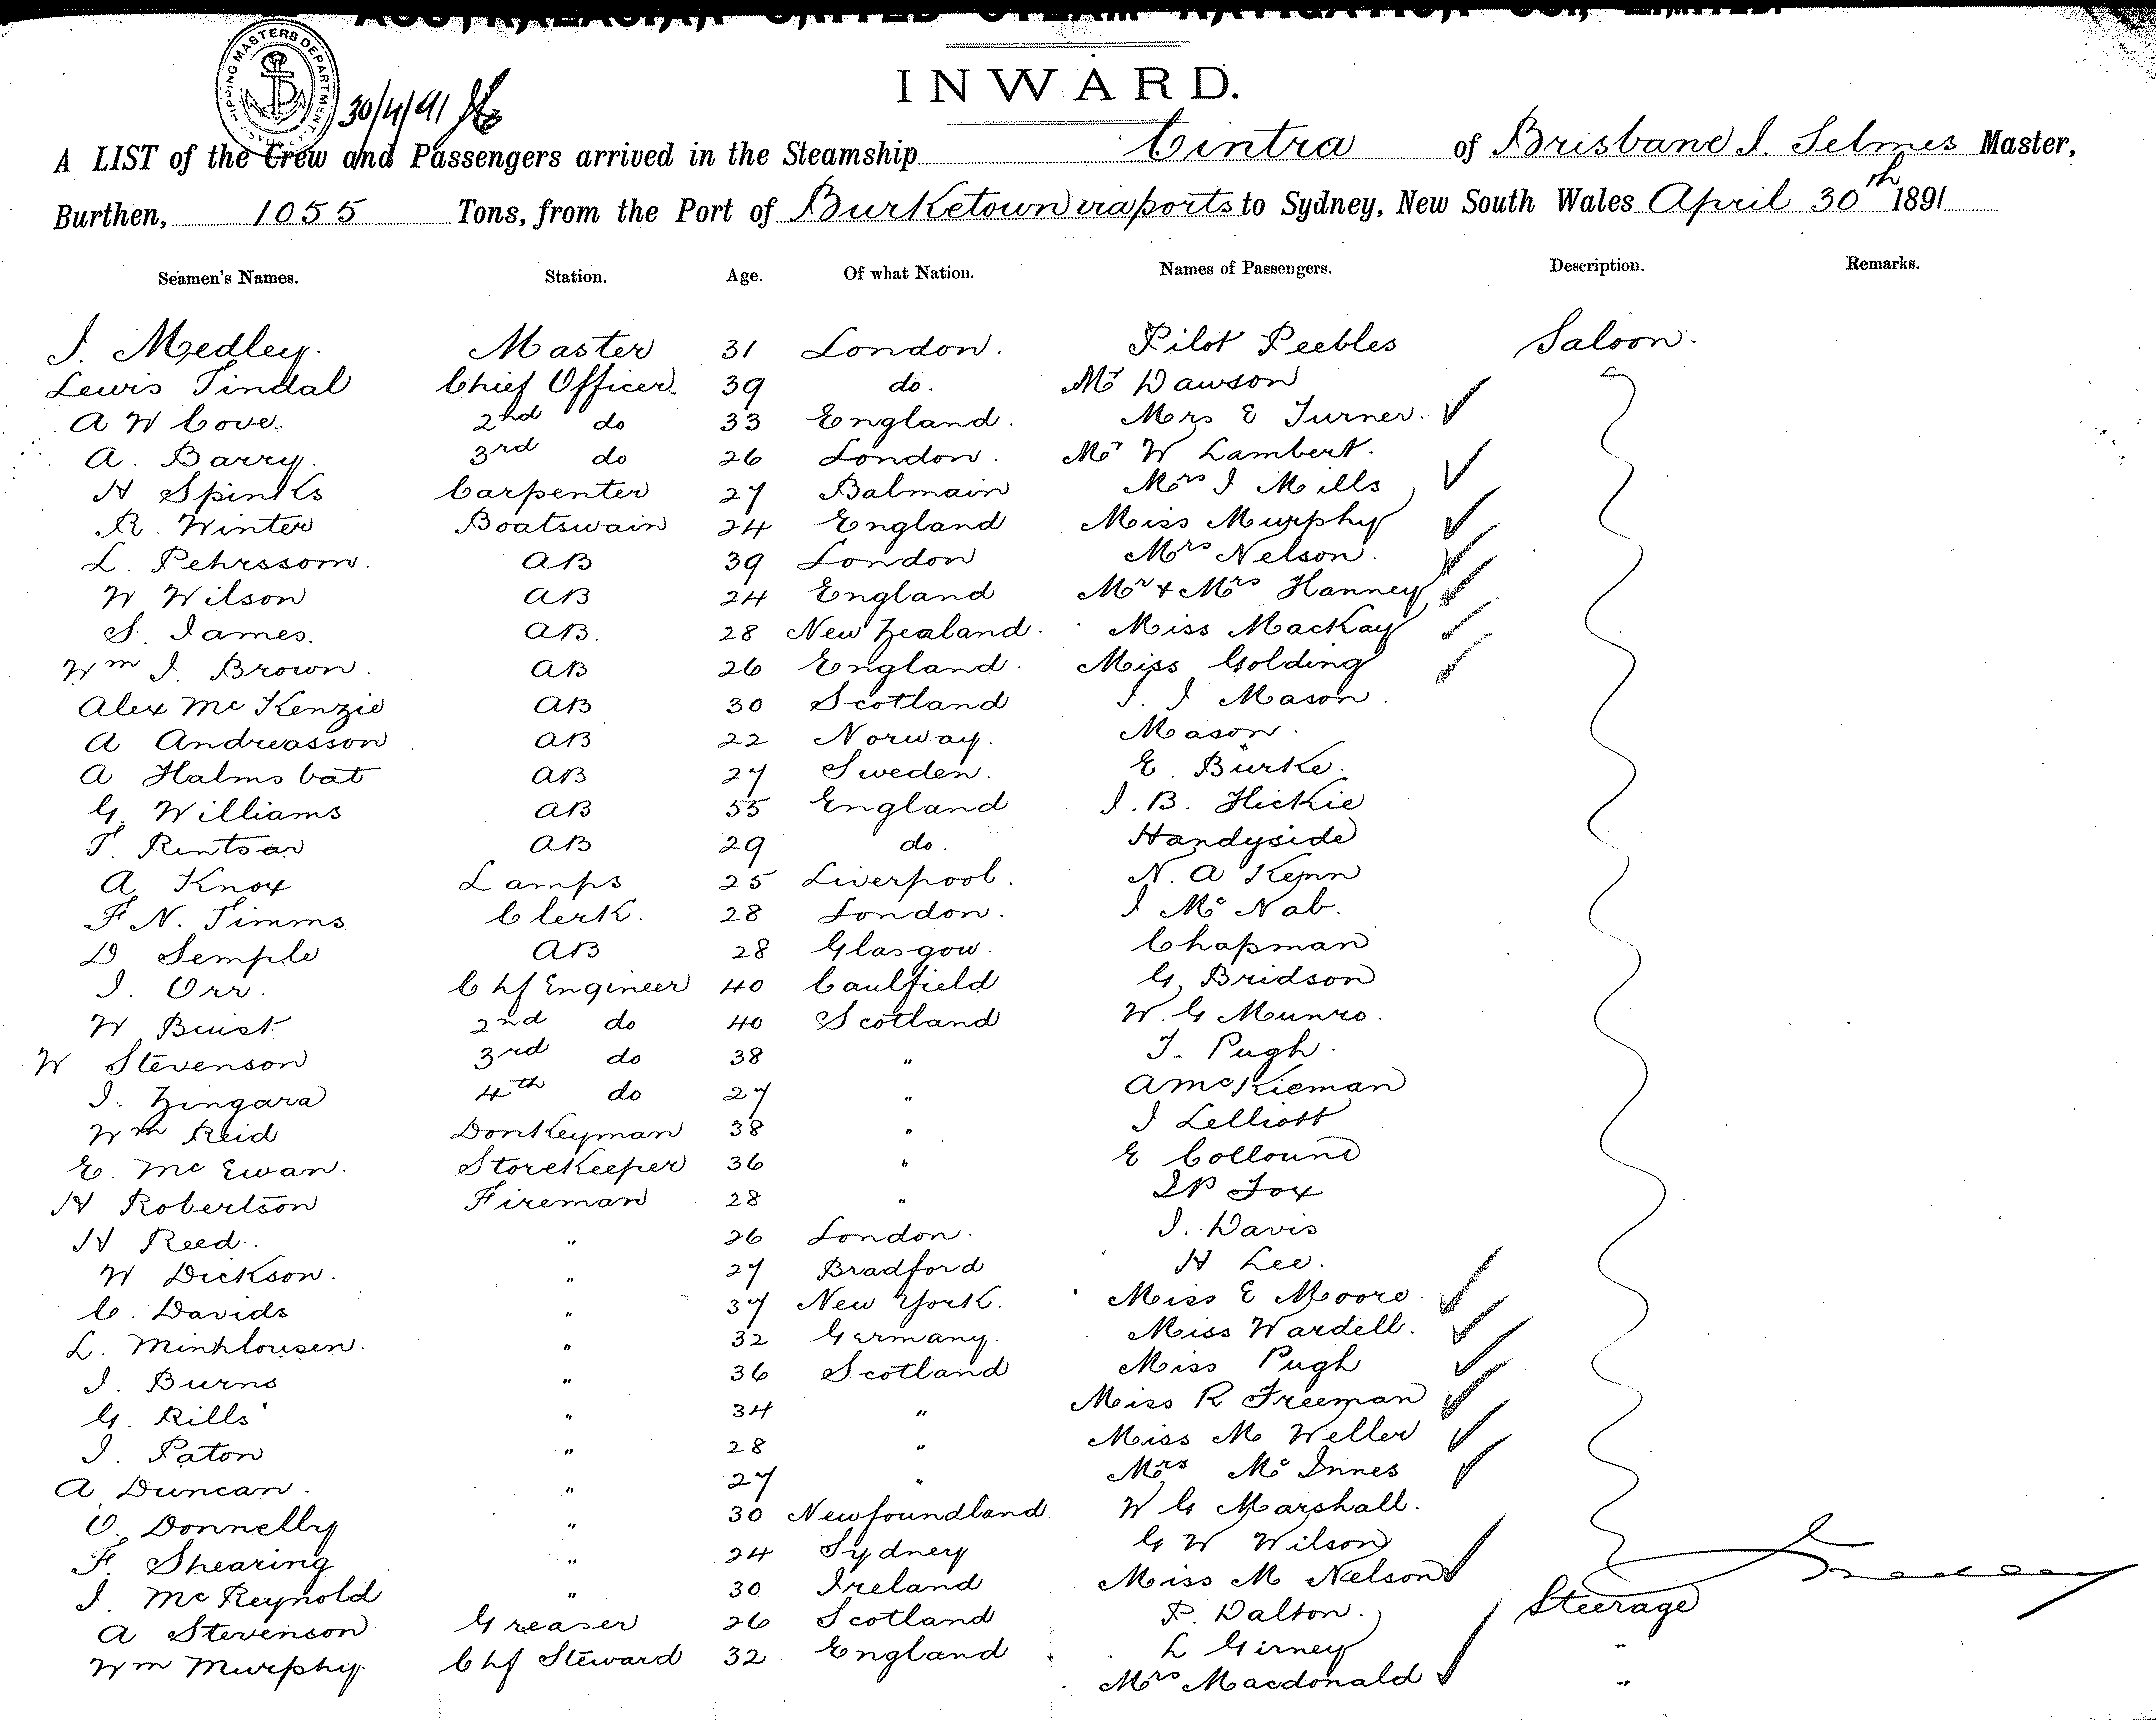 AUSTRALASIAN UNITED STEAM NAVIGATION CO., LIMITED.
SHIPPING MASTERS DEPARTMENT
30/4/91
INWARD.
A LIST of the Crew and Passengers arrived in the Steamship Cintra of Brisbane J. Selmes Master,
Burthen, 1055 Tons, from the Port of Burketown via ports to Sydney, New South Wales April 30th 1891
Seamen's Names. Station. Age. Of what Nation. Names of Passengers. Description. Remarks.
J. Medley. Master 31 London. Pilot Peebles Saloon.
Lewis Tindal Chief Officer. 39 do. Mr Dawson
A W Cove. 2nd do 33 England. Mrs E Turner.
A. Barry. 3rd do 26 London. Mr W Lambert.
H Spinks Carpenter 27 Balmain Mrs J Mills
R. Winter Boatswain 24 England Miss Murphy
L. Pehrssom. AB 39 London Mrs Nelson.
W Wilson AB 24 England Mr & Mrs Hanney
S. James. AB. 28 New Zealand. Miss MacKay
Wm J. Brown. AB 26 England. Miss Golding
Alex McKenzie AB 30 Scotland J. J Mason.
A Andreasson AB 22 Norway. Mason.
A Halmsbat AB 27 Sweden. E. Burke.
G. Williams AB 55 England J. B. Hickie
T. Rintsar AB 29 do. Handyside
A Knox Lamps 25 Liverpool. N. A Kenn
F N. Timms. Clerk. 28 London. J McNab.
D Semple AB 28 Glasgow. Chapman
J. Orr. Chf Engineer 40 Caulfield G. Bridson
W Buist 2nd do 40 Scotland W. G Munro.
W Stevenson 3rd do 38 " T. Pugh.
J. Zingara 4th do 27 " A McKieman
Wm Reid Donkeyman 38 " J Lelliott
E. McEwan. Storekeeper 36 " E Collound
H Robertson Fireman 28 " Fox
H Reed. " 26 London. J. Davis
W Dickson. " 27 Bradford H Lee.
C. Davids " 37 New York. Miss E Moore.
L. Minhlousen. " 32 Germany. Miss Wardell.
J. Burns " 36 Scotland Miss Pugh
G. Rills " 34 " Miss R Freeman
J. Paton " 28 " Miss M Weller
A Duncan. " 27 " Mrs McInnes
O. Donnelly " 30 Newfoundland. W G Marshall.
F. Shearing " 24 Sydney G W Wilson
J. McReynold " 30 Ireland Miss M Nelson
A Stevenson Greaser 26 Scotland P. Dalton. Steerage
Wm Murphy. Chf Steward 32 England L Girney "
Mrs Macdonald "